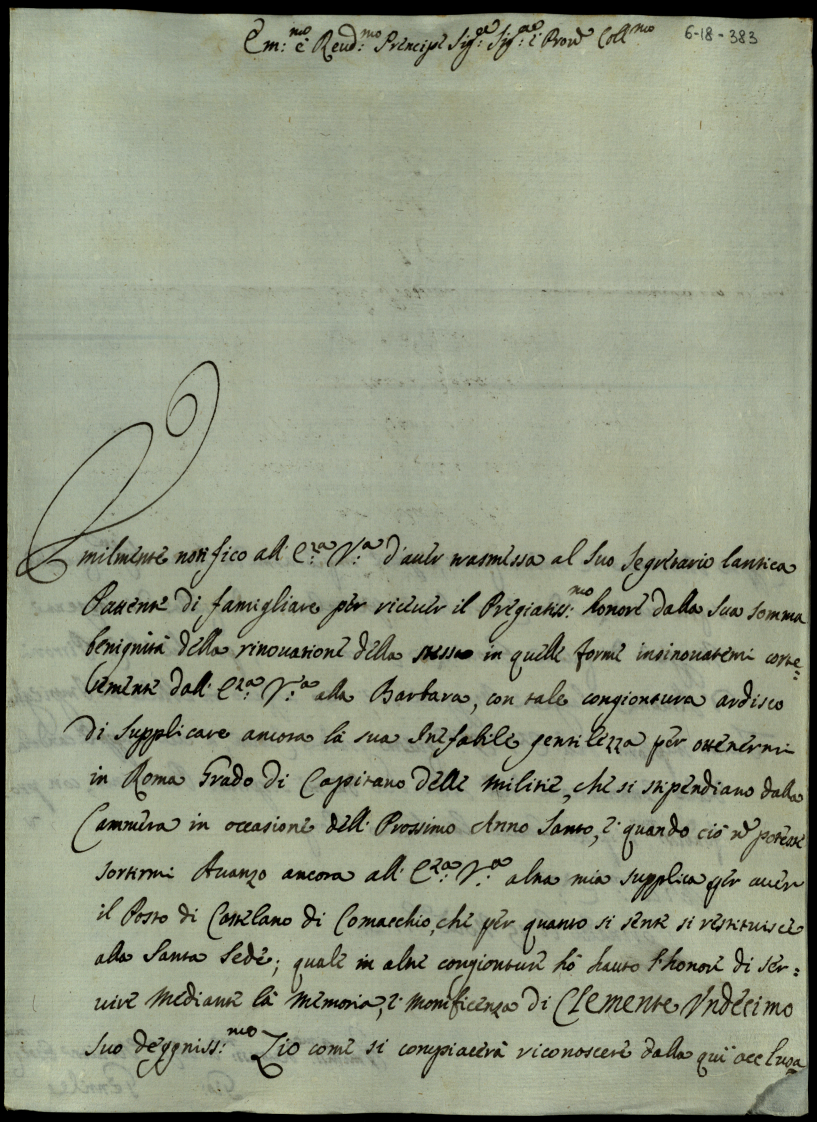 Em:mo e Reud:mo Principe Sig:re Sig:re e Prone Coll:mo
6-18-383
Umilmente notifico all' E:za V:a d'auer trasmessa al Suo Segretario lantica
Pattente di famigliare per riceuer il Pregiatiss:mo honore dalla Sua somma
benignità della rinouatione della stessa in quelle forme insinouatemi corte=
semente dall' E:za V:a alla Barbara, con tale congiontura ardisco
di Supplicare ancora la sua Inefabile gentilezza per ottenermi
in Roma Grado di Capitano delle militie, che si stipendiano dalla
Cammera in occasione dell' Prossimo Anno Santo, e quando ciò nō potesse
sortirmi Auanzo ancora all' E:za V:a altra mia supplica per auer
il Posto di Castelano di Comacchio, che per quanto si sente si restituisce
alla Santa Sede; quale in altre congionture hò hauto l'honore di ser=
uire Mediante la memoria, e monificenza di Clemente Vndecimo
Suo deggniss:mo Zio come si compiacerà riconoscere dalla qui acclusa